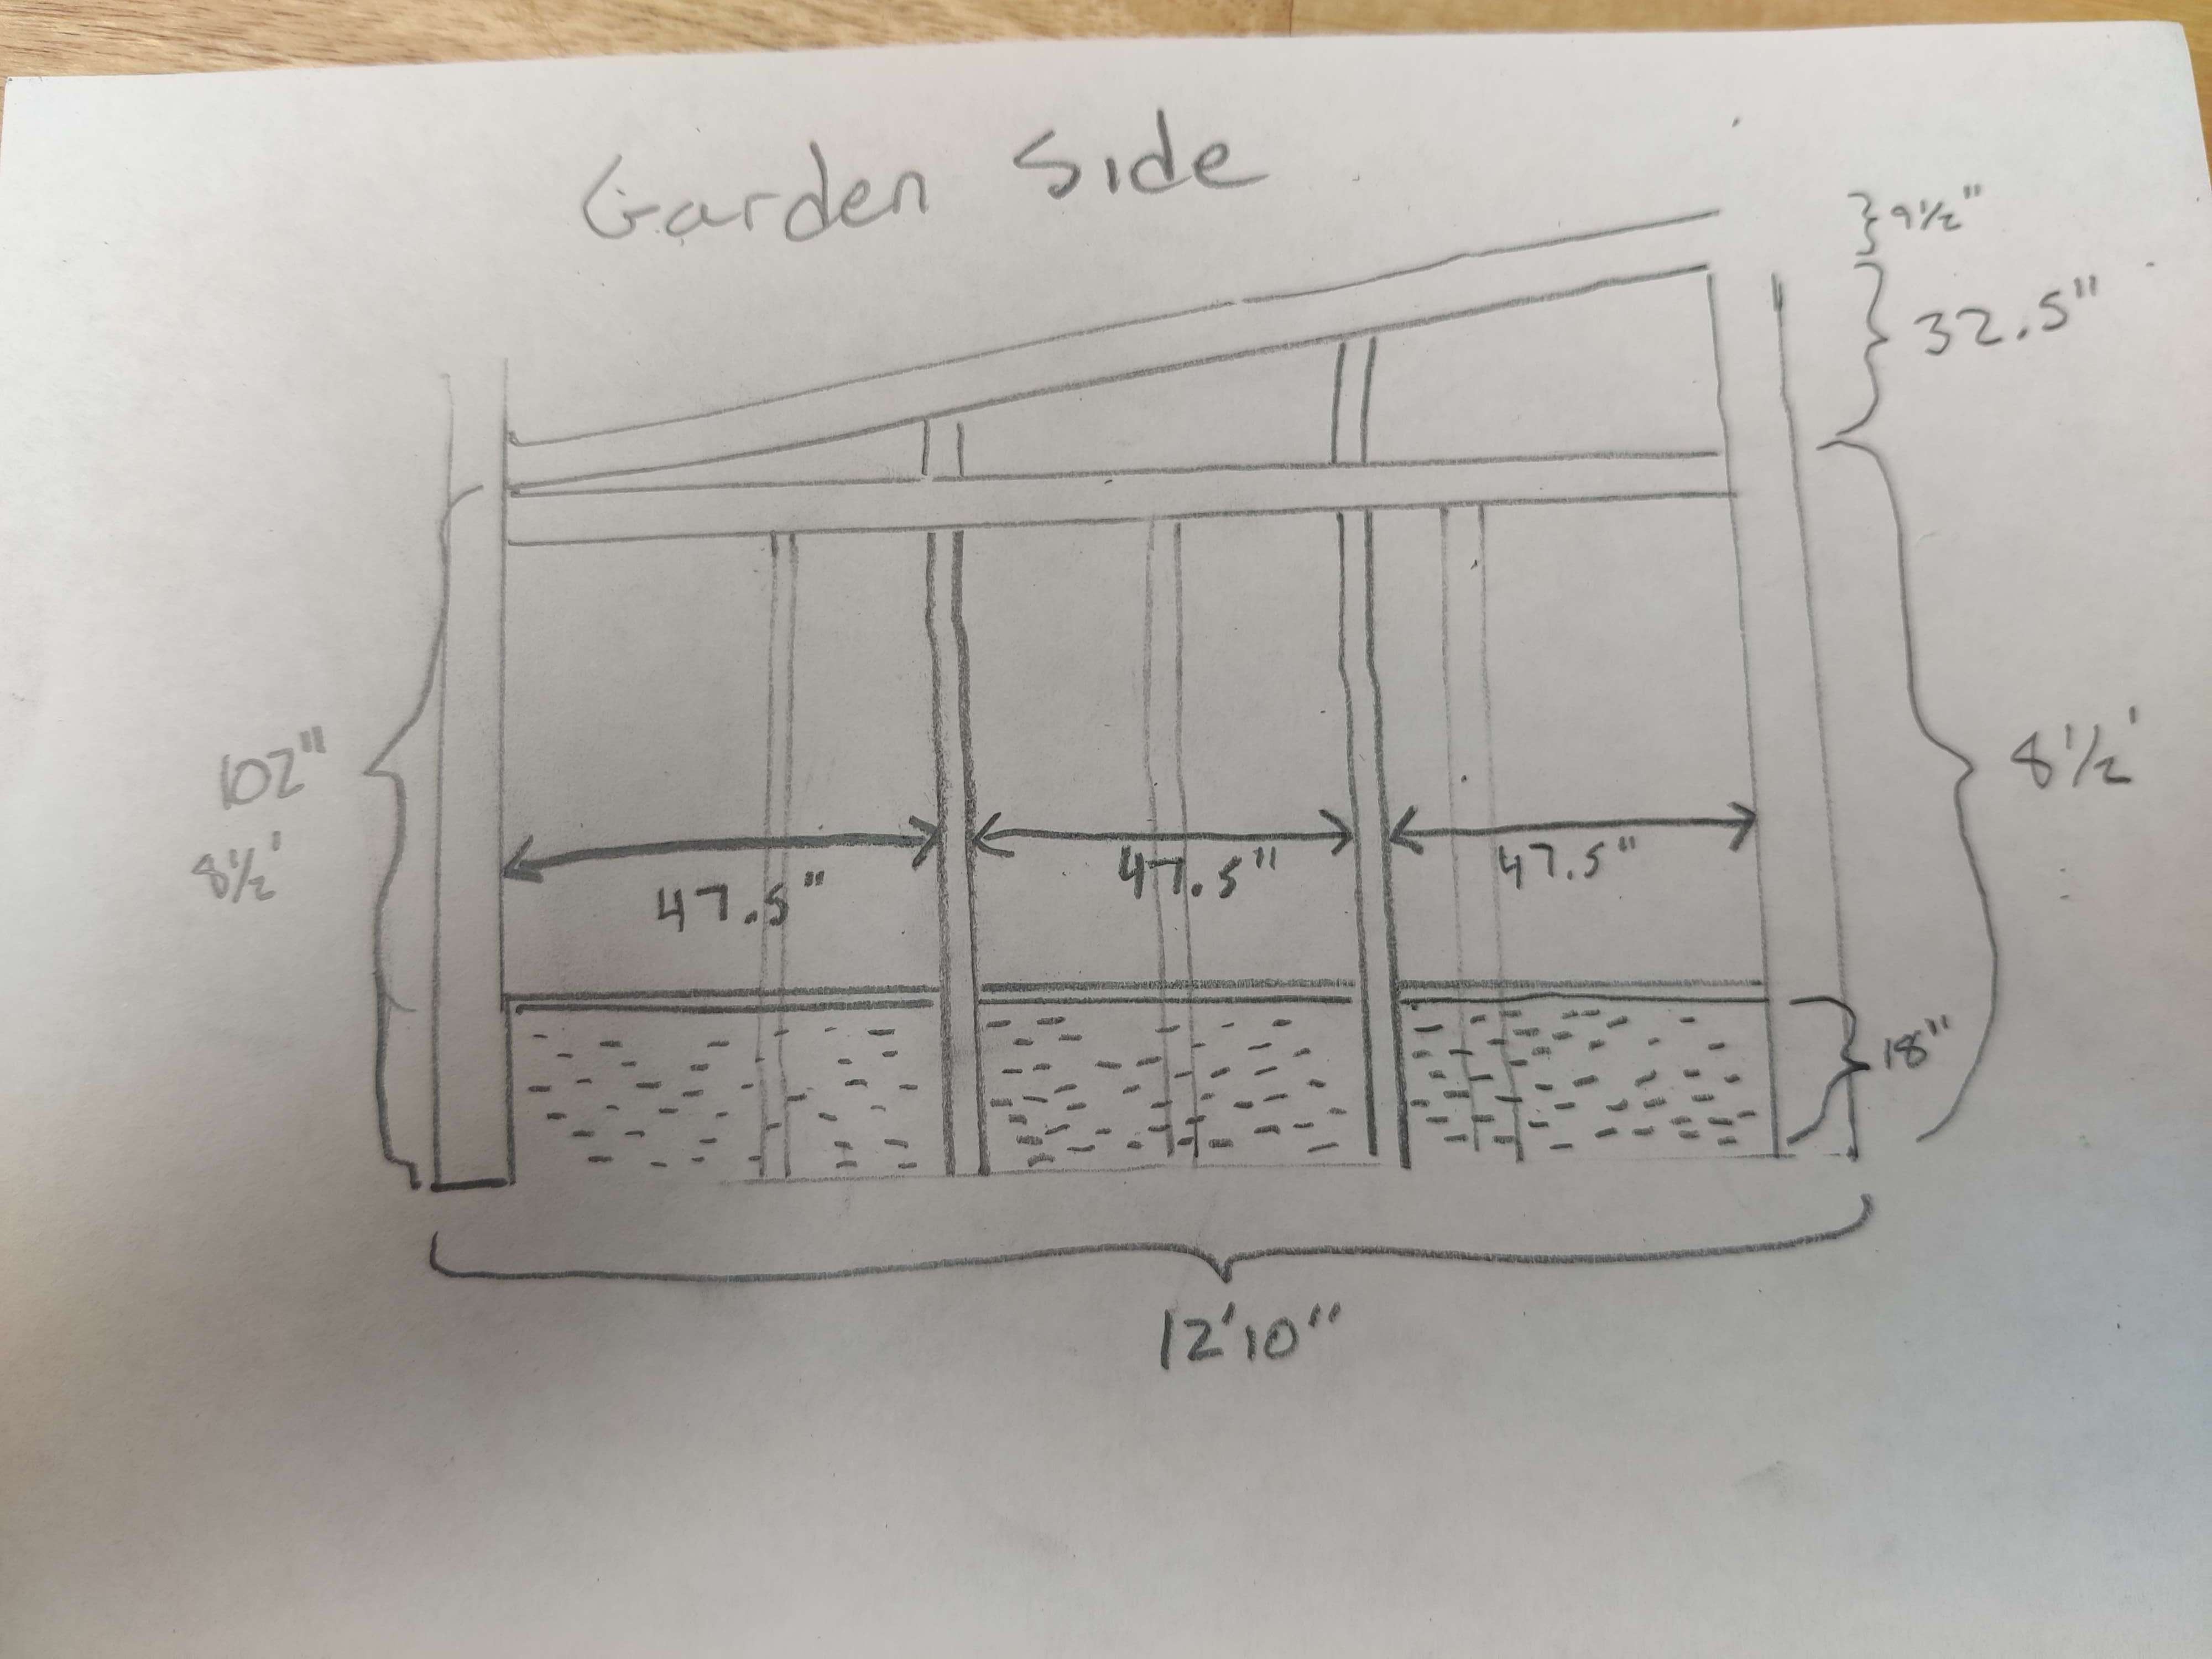 Garden Side
9½"
32.5"
102"
8½'
8½'
47.5"
47.5"
47.5"
18"
12'10"